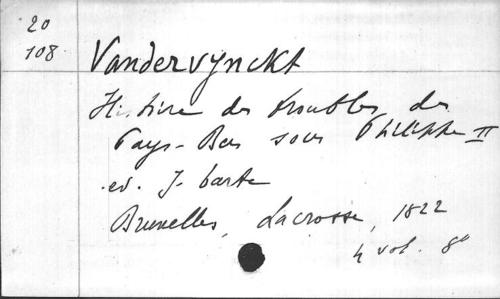 20
108
Vandervynckt
Histoire des troubles des
Pays-Bas sous Philippe II
ed. J. Tarte
Bruxelles, Lacrosse, 1822
4 vol. 8°